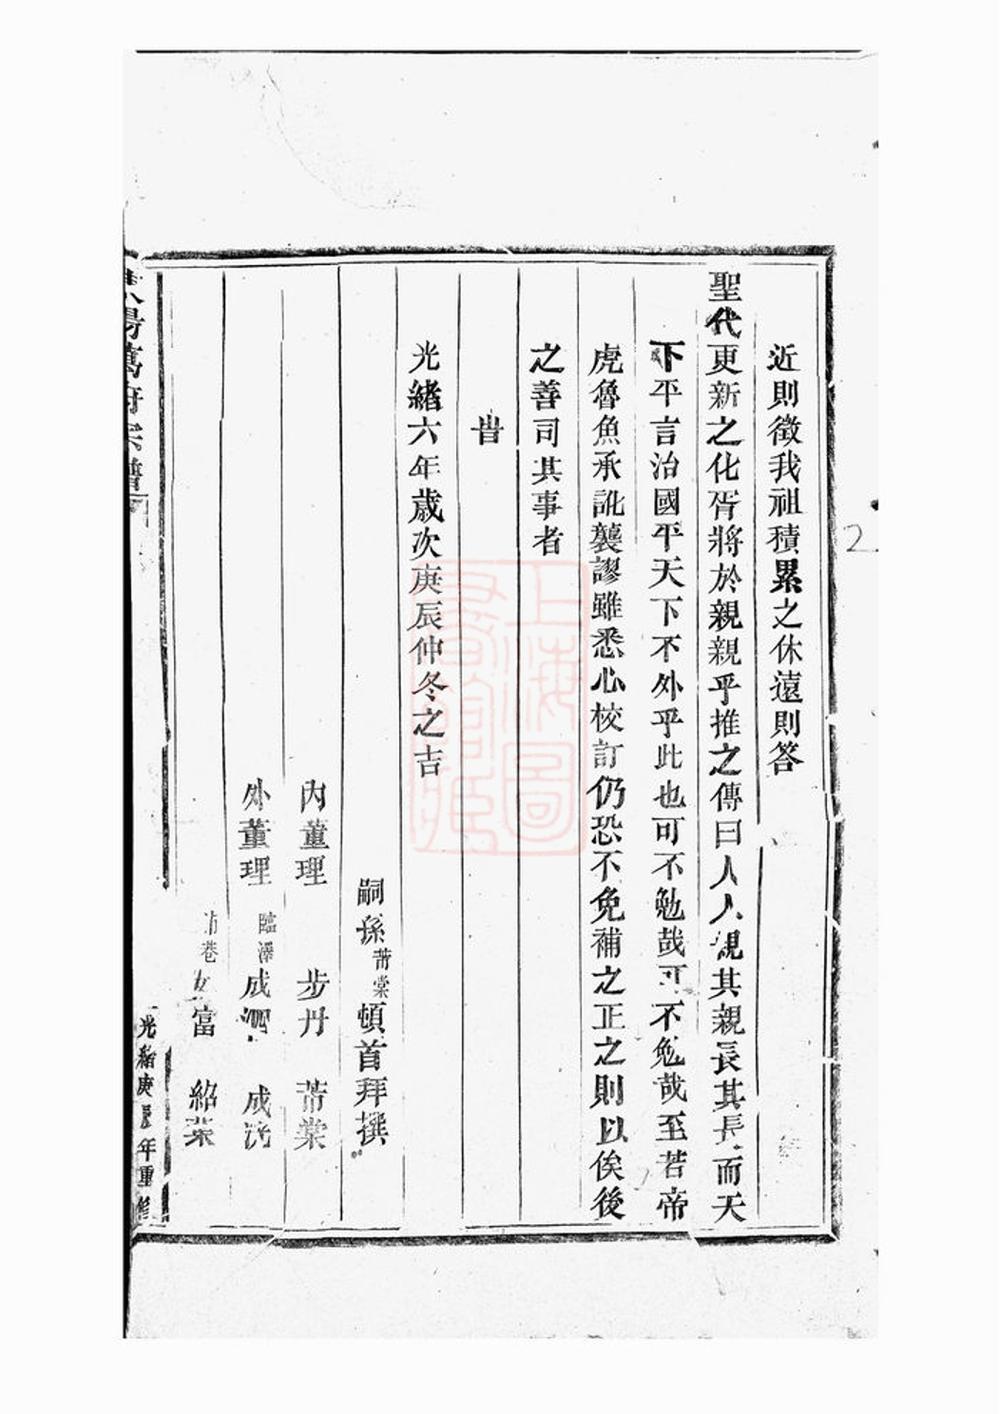 近則徵我祖積累之休遠則答
聖代更新之化胥將於親親乎推之傳曰人人親其親長其長而天
下平言治國平天下不外乎此也可不勉哉可不勉哉至若帝
虎魯魚承訛襲謬雖悉心校訂仍恐不免補之正之則以俟後
之善司其事者
旹
光緒六年歲次庚辰仲冬之吉
嗣孫芾棠頓首拜撰
內董理 步丹 芾棠
外董理 臨澤 成泗 成
巷 富 紹棻
萬府宗譜
光緒庚辰年重修
上海圖書館藏
2